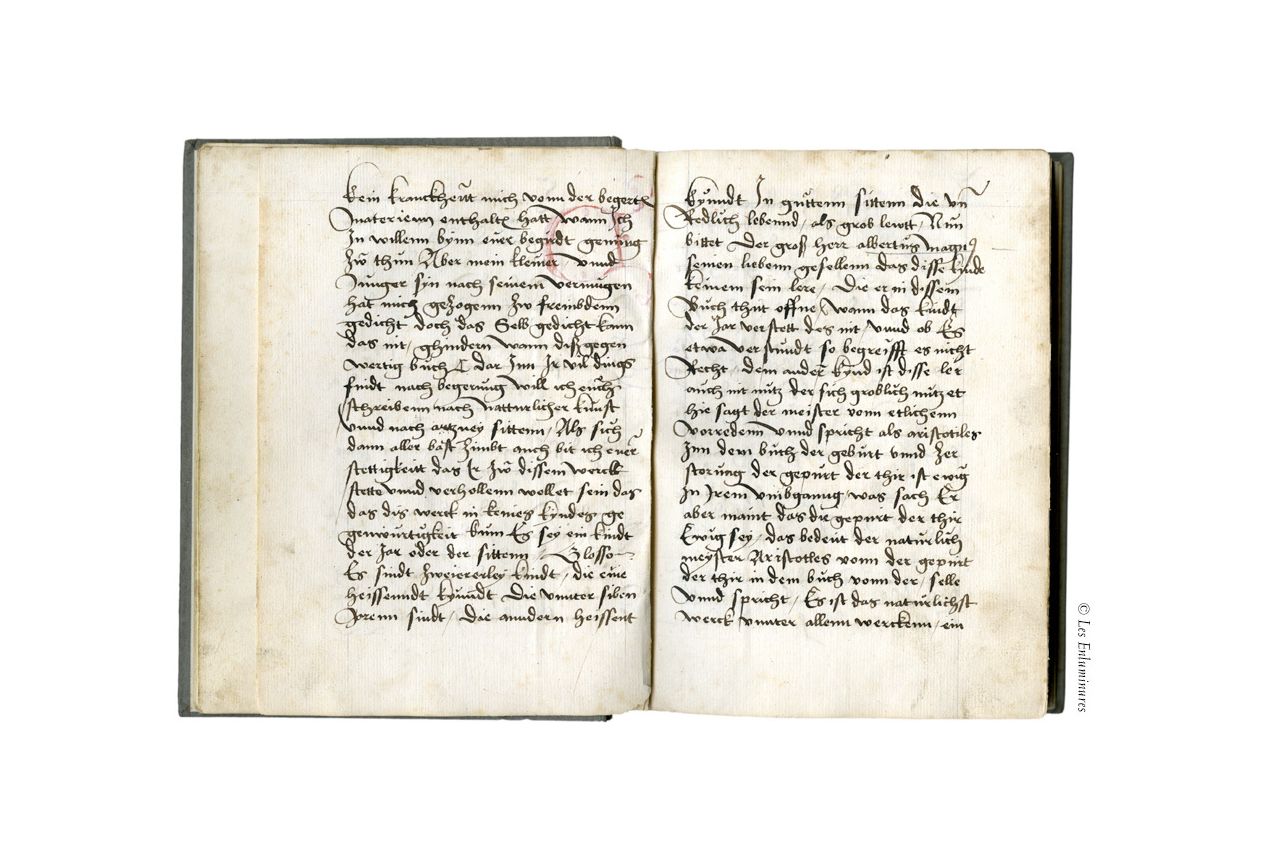 kein kranckheitt mich vonn der begertē
materienn enthaltē hatt wann ich
In willenn bynn ewer begirdt genung
Zw thun Aber mein kleiner vnnd
Junger syn nach seinem vermugen
hat mich gezogenn Zw frembdenn
gedicht doch das Selb gedicht kann
das nit ghindern wann diß gegen
wertig buch dar Inn Ir vil dings
findt nach begerung will ich euch
schreibenn nach natturlicher kunst
vnnd nach artzney sittenn / Als sich
dann aller bast Zimbt auch bit ich ewer
stettigkeitt das Er Zw dissem werck
stette vnnd verhollenn wellet sein das
das dis werck in keines kyndes ge
genwurtigkeit kum Es sey ein kindt
der Jar oder der sittenn / Glosso
Es sindt Zweiererley kindt / die eine
heissenndt kynndt Die vnnter siben
Jorenn sindt / Die anndern heissent
kynndt In guttenn sittenn die vn
Redlich lebennd / als grob lewtt / Nun
bittet der groß herr albertus magnꝰ
seinen liebenn gesellenn das disse kinde
keinem sein lere / Die er in dissem
Buch thut offne / wann das kindt
der Jar verstett des nit / vnnd ob Es
etwa verstundt so begreifft es nicht
Recht / dem ander kynd ist disse ler
auch nit nutz der sich groblich nutzet
hie sagt der meister vonn etlichenn
vorredenn vnnd spricht als aristotiles
Inn dem buch der geburt vnnd Zer
storung der gepurt der thir ist ewig
In Irem vmbgannng / was sach Er
aber maint das die gepurt der thir
Ewig sey / das bedeut der naturlich
meyster Aristotles vonn der gepurt
der thir in dem buch vonn der / selle
vnnd spricht / Es ist das naturlichst
werck vnnter allenn werckenn / ein
© Les Enluminures